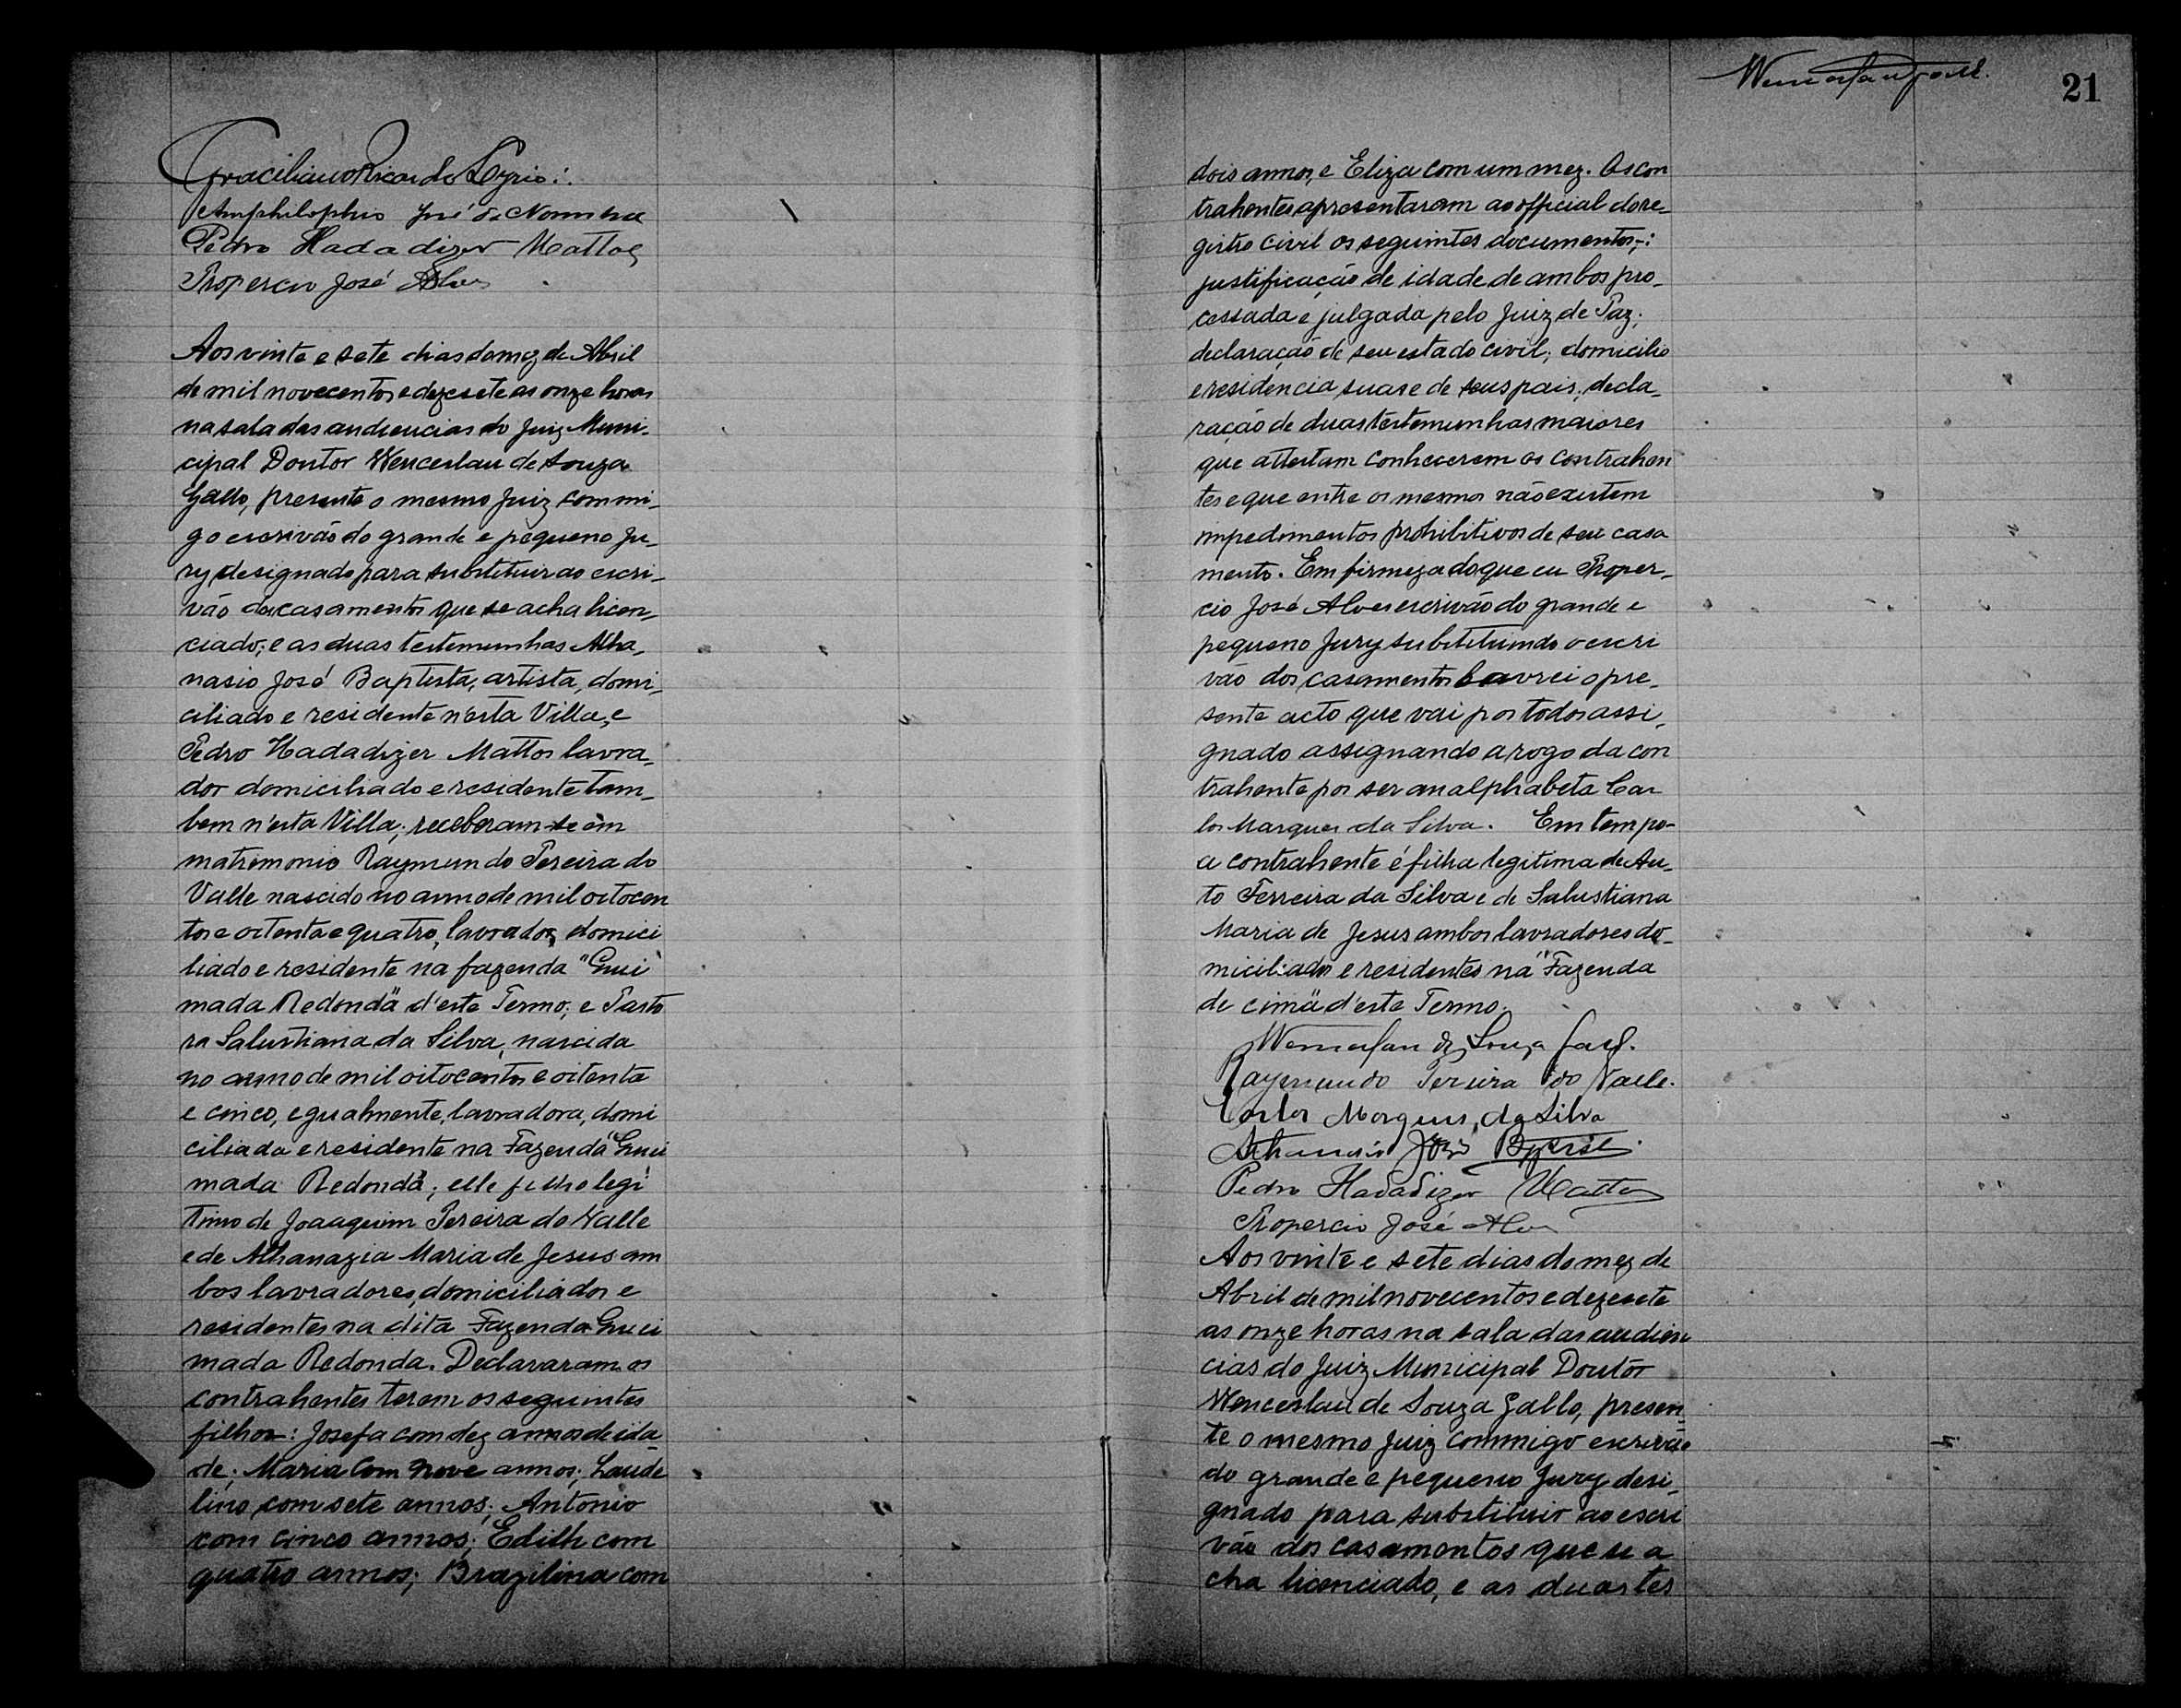 Graciliano Ricardo Lyrio
Amphilophio José de Noronha
Pedro Hadadizer Mattos
Propercio José Alves
Aos vinte e sete dias do mez de Abril
de mil novecentos e dezesete as onze horas
na sala das audiencias do Juiz Muni-
cipal Doutor Wenceslau de Souza
Gallo, presente o mesmo Juiz commi-
go escrivão do grande e pequeno Ju-
ry designado para substituir ao escri-
vão dos casamentos que se acha licen-
ciado; e as duas testemunhas Atha-
nasio José Baptista, artista, domi-
ciliado e residente n'esta Villa, e
Pedro Hadadizer Mattos lavra-
dor domiciliado e residente tam-
bem n'esta Villa; receberam-se em
matrimonio Raymundo Pereira do
Valle nascido no anno de mil oitocen
tos e oitenta e quatro, lavrador, domici
liado e residente na fazenda "Guei
mada Redonda" d'este Termo; e Pasto
ra Salustiana da Silva, nascida
no anno de mil oitocentos e oitenta
e cinco, egualmente, lavradora, domi
ciliada e residente na Fazenda "Guei
mada Redonda"; elle filho legi
timo de Joaaquim Pereira do Valle
e de Athanazia Maria de Jesus am
bos lavradores, domiciliados e
residentes na dita Fazenda Guei
mada Redonda. Declararam os
contrahentes terem os seguintes
filhos: Josefa com dez annos de ida-
de; Maria com nove annos; Laude
lino com sete annos; Antonio
com cinco annos; Edith com
quatro annos; Brazilina com
21
dois annos, e Eliza com um mez. Os con
trahentes apresentaram ao official do re-
gistro civil os seguintes documentos:
justificação de idade de ambos pro-
cessada e julgada pelo Juiz de Paz;
declaração de seu estado civil; domicilio
e residencia suas e de seus pais; decla-
ração de duas testemunhas maiores
que attestam conhecerem os contrahen
tes e que entre os mesmos não existem
impedimentos prohibitivos de seu casa
mento. Em firmeza do que eu Proper-
cio José Alves escrivão do grande e
pequeno Jury substituindo o escri
vão dos casamentos lavrei o pre-
sente acto que vai por todos assi-
gnado assignando a rogo da con
trahente por ser analphabeta Car
los Marques da Silva. Em tempo-
a contrahente é filha legitima de Au-
to Ferreira da Silva e de Salustiana
Maria de Jesus ambos lavradores do-
miciliados e residentes na "Fazenda
de cima" d'este Termo.
Wenceslau de Souza Gallo.
Raymundo Pereira do Valle.
Carlos Marques da Silva
Athanasio José Baptista
Pedro Hadadizer Mattos
Propercio José Alves
Aos vinte e sete dias do mez de
Abril de mil novecentos e dezesete
as onze horas na sala das audien
cias do Juiz Municipal Doutor
Wenceslau de Souza Gallo, presen-
te o mesmo Juiz commigo escrivão
do grande e pequeno Jury desi-
gnado para substituir ao escri
vão dos casamentos que se a
cha licenciado, e as duas tes